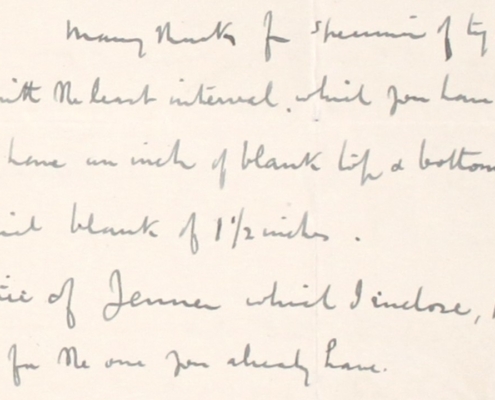 Many thanks for specimen of ty
with the least interval, which you have
have an inch of blank top & bottom
blank of 1 1/2 inches.
of Jenner which I inclose,
for the one you already have.